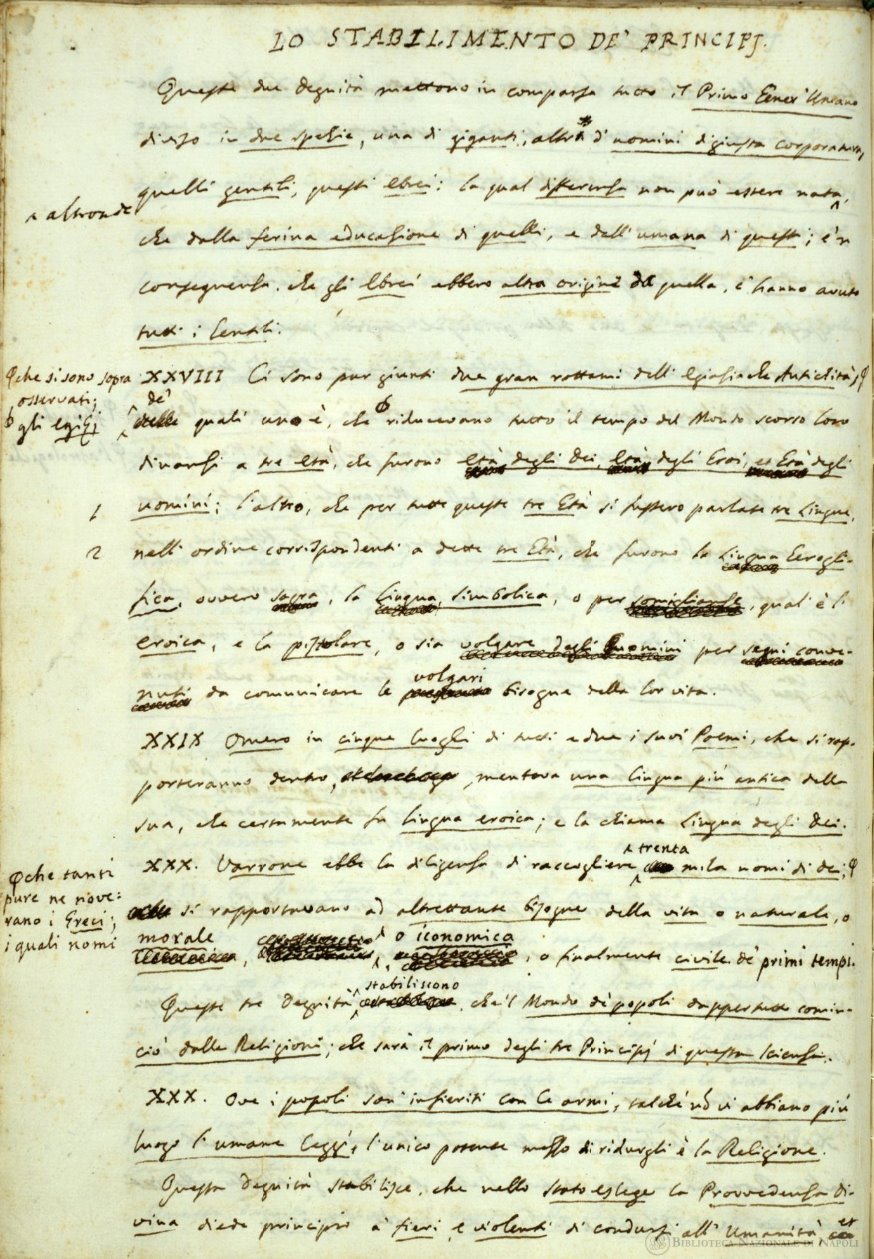 LO STABILIMENTO DE' PRINCIPJ.
Queste due degnità mettono in comparsa tutto il Primo Gener' Umano
diviso in due spezie, una di giganti, altra d' uomini di giusta corporatura,
quelli gentili, questi Ebrei: la qual differenza non può essere nata
^ altronde
che dalla ferina educazione di quelli, e dell'umana di questi; e 'n
conseguenza, che gli Ebrei ebbero altra origine da quella, c' hanno avuto
tutti i Gentili.
XXVIII Ci sono pur giunti due gran rottami dell' Egiziache Antichità,
che si sono sopra
osservati;
de'
quali uno è, che riducevano tutto il tempo del Mondo scorso loro
gli Egizj
dinanzi a tre Età, che furono Età degli Dei, Età degli Eroi, et Età degli
uomini: l'altro, che per tutte queste tre Età si fussero parlate tre Lingue,
1
nell' ordine corrispondenti a dette tre Età, che furono la Lingua Gerogli-
2
fica, ovvero sagra, la Lingua simbolica, o per somiglianze, qual è l'
eroica, e la pistolare, o sia volgare degli uomini per segni conve-
nuti da comunicare le volgari bisogne della lor vita.
XXIX Omero in cinque luoghi di tutti e due i suoi Poemi, che si rap-
porteranno dentro, mentova una lingua più antica della
sua, che certamente fu lingua eroica; e la chiama lingua degli Dei.
XXX. Varrone ebbe la diligenza di raccogliere trenta mila nomi di dei;
che tanti
pure ne nove-
rano i Greci;
i quali nomi
si rapportavano ad altrettante bisogne della vita o naturale, o
morale, o iconomica, o finalmente civile de' primi tempi.
Queste tre degnità stabiliscono, che 'l Mondo de' popoli dappertutto comin-
ciò dalle Religioni; che sarà il primo degli tre Principj di questa Scienza.
XXX. Ove i popoli son' infieriti con le armi, talché non vi abbiano più
luogo l' umane leggi, l'unico potente mezzo di ridurgli è la Religione.
Questa degnità stabilisce, che nello stato eslege la Provvedenza Di-
vina diede principio a' fieri, e violenti di condursi all' Umanità, et
BIBLIOTECA NAZIONALE DI NAPOLI